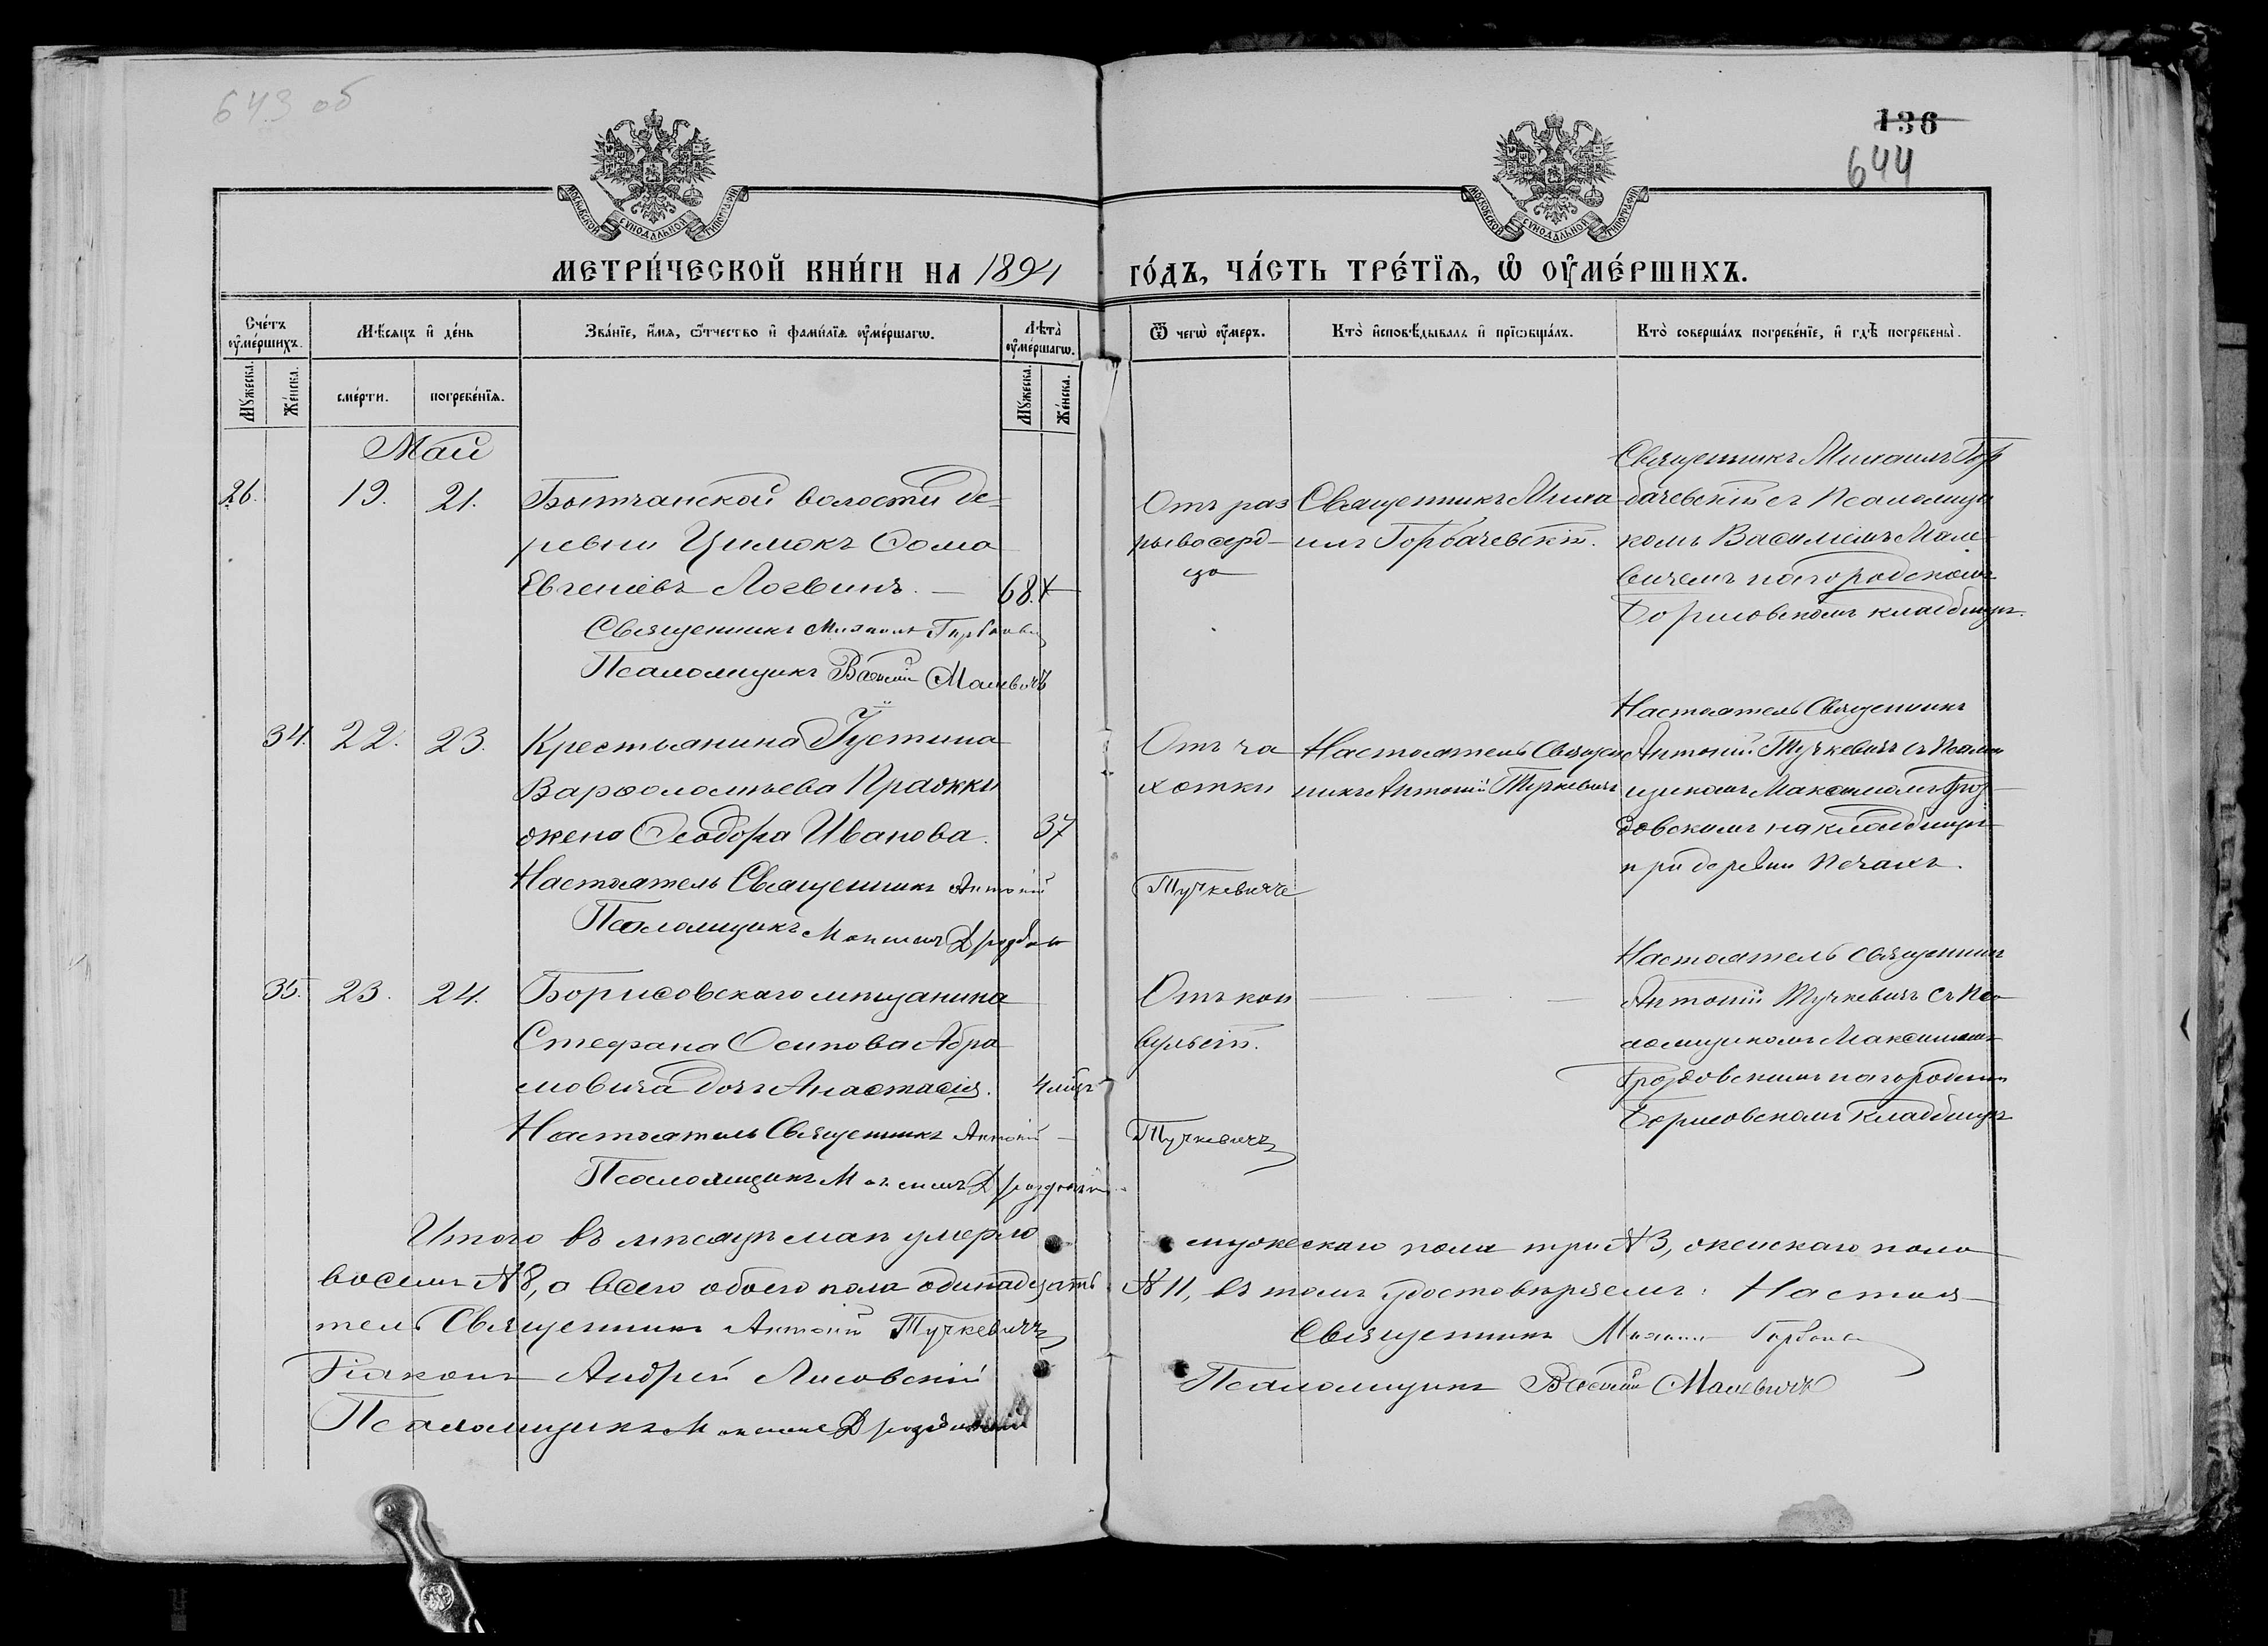 643 об
136
644
МОСКОВСКОЙ СУНОДАЛЬНОЙ ТИПОГРАФІИ
МОСКОВСКОЙ СУНОДАЛЬНОЙ ТИПОГРАФІИ
МЕТРИ́ЧЕСКОЙ КНИ́ГИ НА 1894
ГО́ДЪ, ЧА́СТЬ ТРЕ́ТЇѦ, Ѡ҆ ОУ҆МЕ́РШИХЪ.
Сче́тъ оу҆ме́ршихъ.
Мꙋ́жеска.
Же́нска.
Мѣ́сяцъ и҆ де́нь
сме́рти.
погребе́нїѧ.
Зва́нїе, и҆́мѧ, ѻ҆́тчество и҆ фами́лїѧ оу҆ме́ршагѡ.
Лѣ́та̀ оу҆ме́ршагѡ.
Мꙋ́жеска.
Же́нска.
Ѿ чегѡ̀ оу҆́меръ.
Кто̀ и҆сповѣ́дывалъ и҆ прїѡбща́лъ.
Кто̀ соверша́лъ погребе́нїе, и҆ гдѣ̀ погребены̀.
Май
26.
19.
21.
Бытчанской волости де-
ревни Цимокъ Ѳома
Евгеніевъ Логвинъ. —
68.
Священникъ Михаилъ
Псаломщикъ Василій Малевичъ
Отъ раз
рыва серд-
ца
Священникъ Миха
илъ Горбачевскій.
Священникъ Михаилъ Гор
бачевскій съ Псаломщи
комъ Василіемъ Мале-
вичемъ на городскомъ
Борисовскомъ кладбищѣ.
34.
22.
23.
Крестьянина Іустина
Варѳоломѣева Пражки
жена Ѳеодора Иванова.
37
Настоятель Священникъ Антоній
Тучкевичъ
Псаломщикъ Максимъ
Отъ ча
хотки
Настоятель Священ
никъ Антоній Тучкевичъ
Настоятель Священникъ
Антоній Тучкевичъ съ Псалом
щикомъ Максимомъ Дроз-
довскимъ на кладбищѣ
при деревни Печахъ.
35.
23.
24.
Борисовскаго мѣщанина
Стефана Осипова Абра
мовича дочь Анастасія.
4 мѣц
Настоятель Священникъ Антоній
Тучкевичъ
Псаломщикъ Максимъ Дроздовскій
Отъ кон
вульсій.
Настоятель священникъ
Антоній Тучкевичъ съ Пса
ломщикомъ Максимомъ
Дроздовскимъ на городскомъ
Борисовскомъ кладбищѣ
Итого въ мѣсяцѣ маѣ умерло мужескаго пола три №3, женскаго пола
восемь №8, а всего обоего пола одинадцать №11, въ томъ удостовѣряемъ: Настоя-
тель Священникъ Антоній Тучкевичъ
Священникъ Михаилъ
Діаконъ Андрей Лисовскій
Псаломщикъ Василій Малевичъ
Псаломщикъ Максимъ Дроздовскій